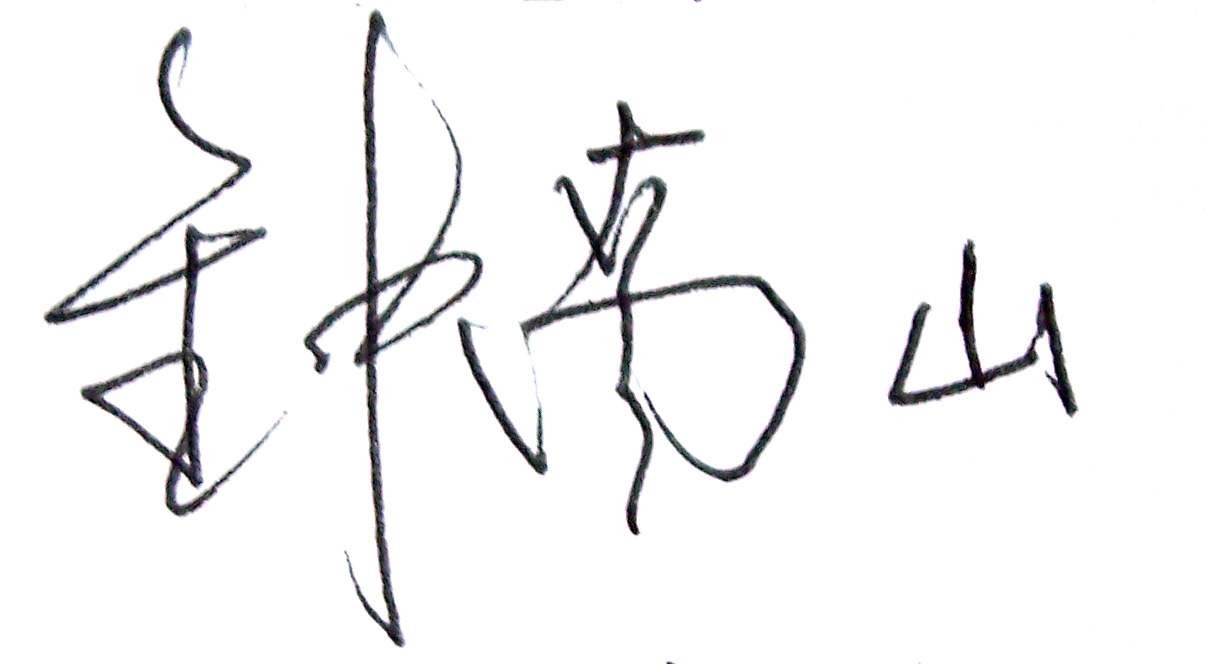 钟南山